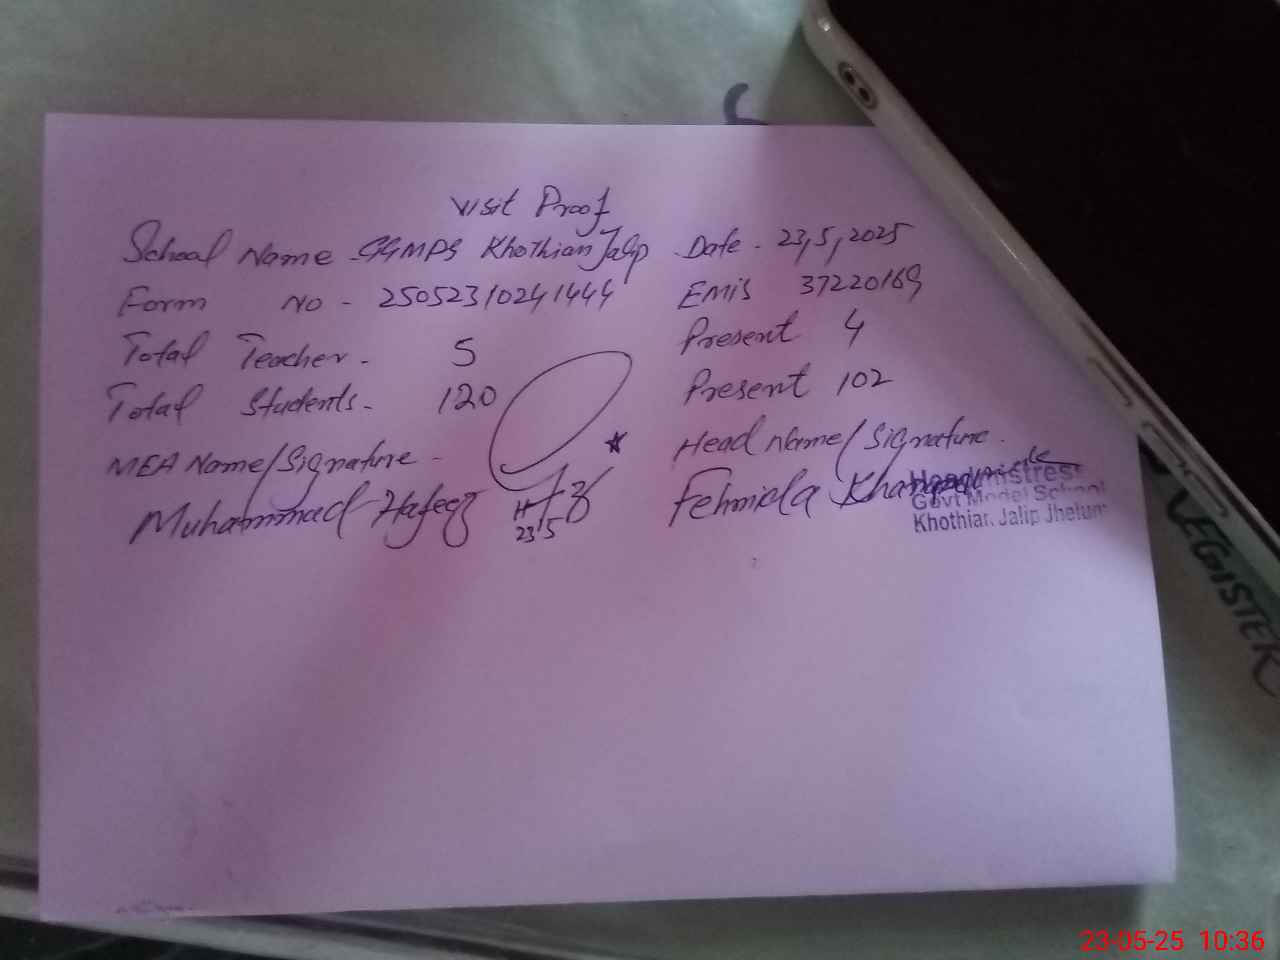 Visit Proof
School Name - GGMPS Khothian Jalip Date - 23,5,2025
Form No - 25052310241444 EMIS 37220169
Total Teacher - 5 Present 4
Total Students - 120 Present 102
MEA Name/Signature - Head Name/Signature.
Muhammad Hafeez Fehmida
23/5
Headmistress
Govt Model School
Khothian Jalip Jhelum
REGISTER
23-05-25 10:36